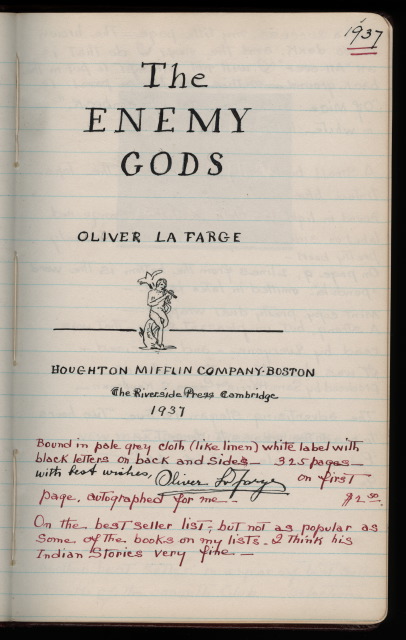 1937
The
ENEMY
GODS
OLIVER LA FARGE
HOUGHTON MIFFLIN COMPANY·BOSTON
The Riverside Press Cambridge
1937
Bound in pale grey cloth (like linen) white label with
black letters on back and sides— 325 pages—
with best wishes, Oliver La Farge on first
page, autographed for me— $2.50.
On the best seller list; but not as popular as
some of the books on my lists. I think his
Indian Stories very fine—